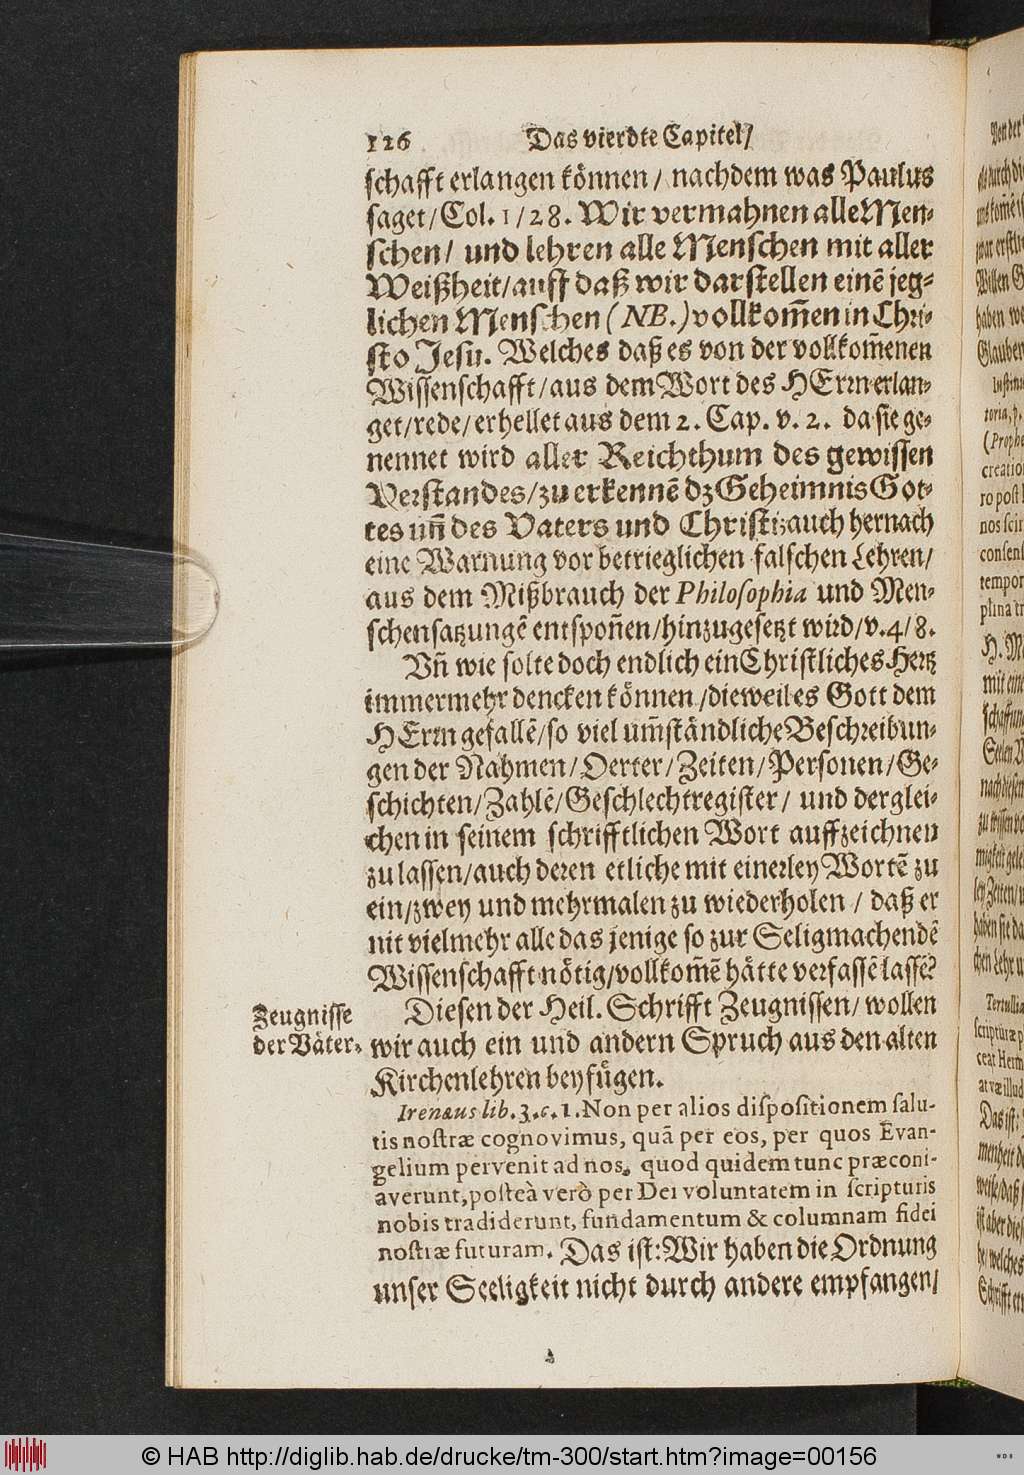 126 Das vierdte Capitel/
schafft erlangen können / nachdem was Paulus
saget/Col. 1/28. Wir vermahnen alle Men-
schen/ und lehren alle Menschen mit aller
Weißheit/auff daß wir darstellen einē jeg-
lichen Menschen (NB.) vollkom̄en in Chri-
sto Jesu. Welches daß es von der vollkom̄enen
Wissenschafft/aus dem Wort des HErrn erlan-
get/rede/erhellet aus dem 2. Cap. v. 2. da sie ge-
nennet wird aller Reichthum des gewissen
Verstandes/zu erkennē dz Geheimnis Got-
tes un̄ des Vaters und Christi; auch hernach
eine Warnung vor betrieglichen falschen Lehren/
aus dem Mißbrauch der Philosophia und Men-
schensatzungē entspon̄en/hinzugesetzt wird/v.4/8.
Un̄ wie solte doch endlich ein Christliches Hertz
immermehr dencken können/dieweil es Gott dem
HErrn gefallē/so viel um̄ständliche Beschreibun-
gen der Nahmen/Oerter/Zeiten/Personen/Ge-
schichten/Zahlē/Geschlechtregister/ und derglei-
chen in seinem schrifftlichen Wort auffzeichnen
zu lassen/auch deren etliche mit einerley Wortē zu
ein/zwey und mehrmalen zu wiederholen / daß er
nit vielmehr alle das jenige so zur Seligmachendē
Wissenschafft nötig/vollkom̄ē hätte verfassē lassē?
Zeugnisse
der Väter.
Diesen der Heil. Schrifft Zeugnissen/ wollen
wir auch ein und andern Spruch aus den alten
Kirchenlehren beyfügen.
Irenæus lib. 3. c. 1. Non per alios dispositionem salu-
tis nostræ cognovimus, quā per eos, per quos Evan-
gelium pervenit ad nos, quod quidem tunc præconi-
averunt, posteà verò per Dei voluntatem in scripturis
nobis tradiderunt, fundamentum & columnam fidei
nostræ futuram. Das ist: Wir haben die Ordnung
unser Seeligkeit nicht durch andere empfangen/
© HAB http://diglib.hab.de/drucke/tm-300/start.htm?image=00156